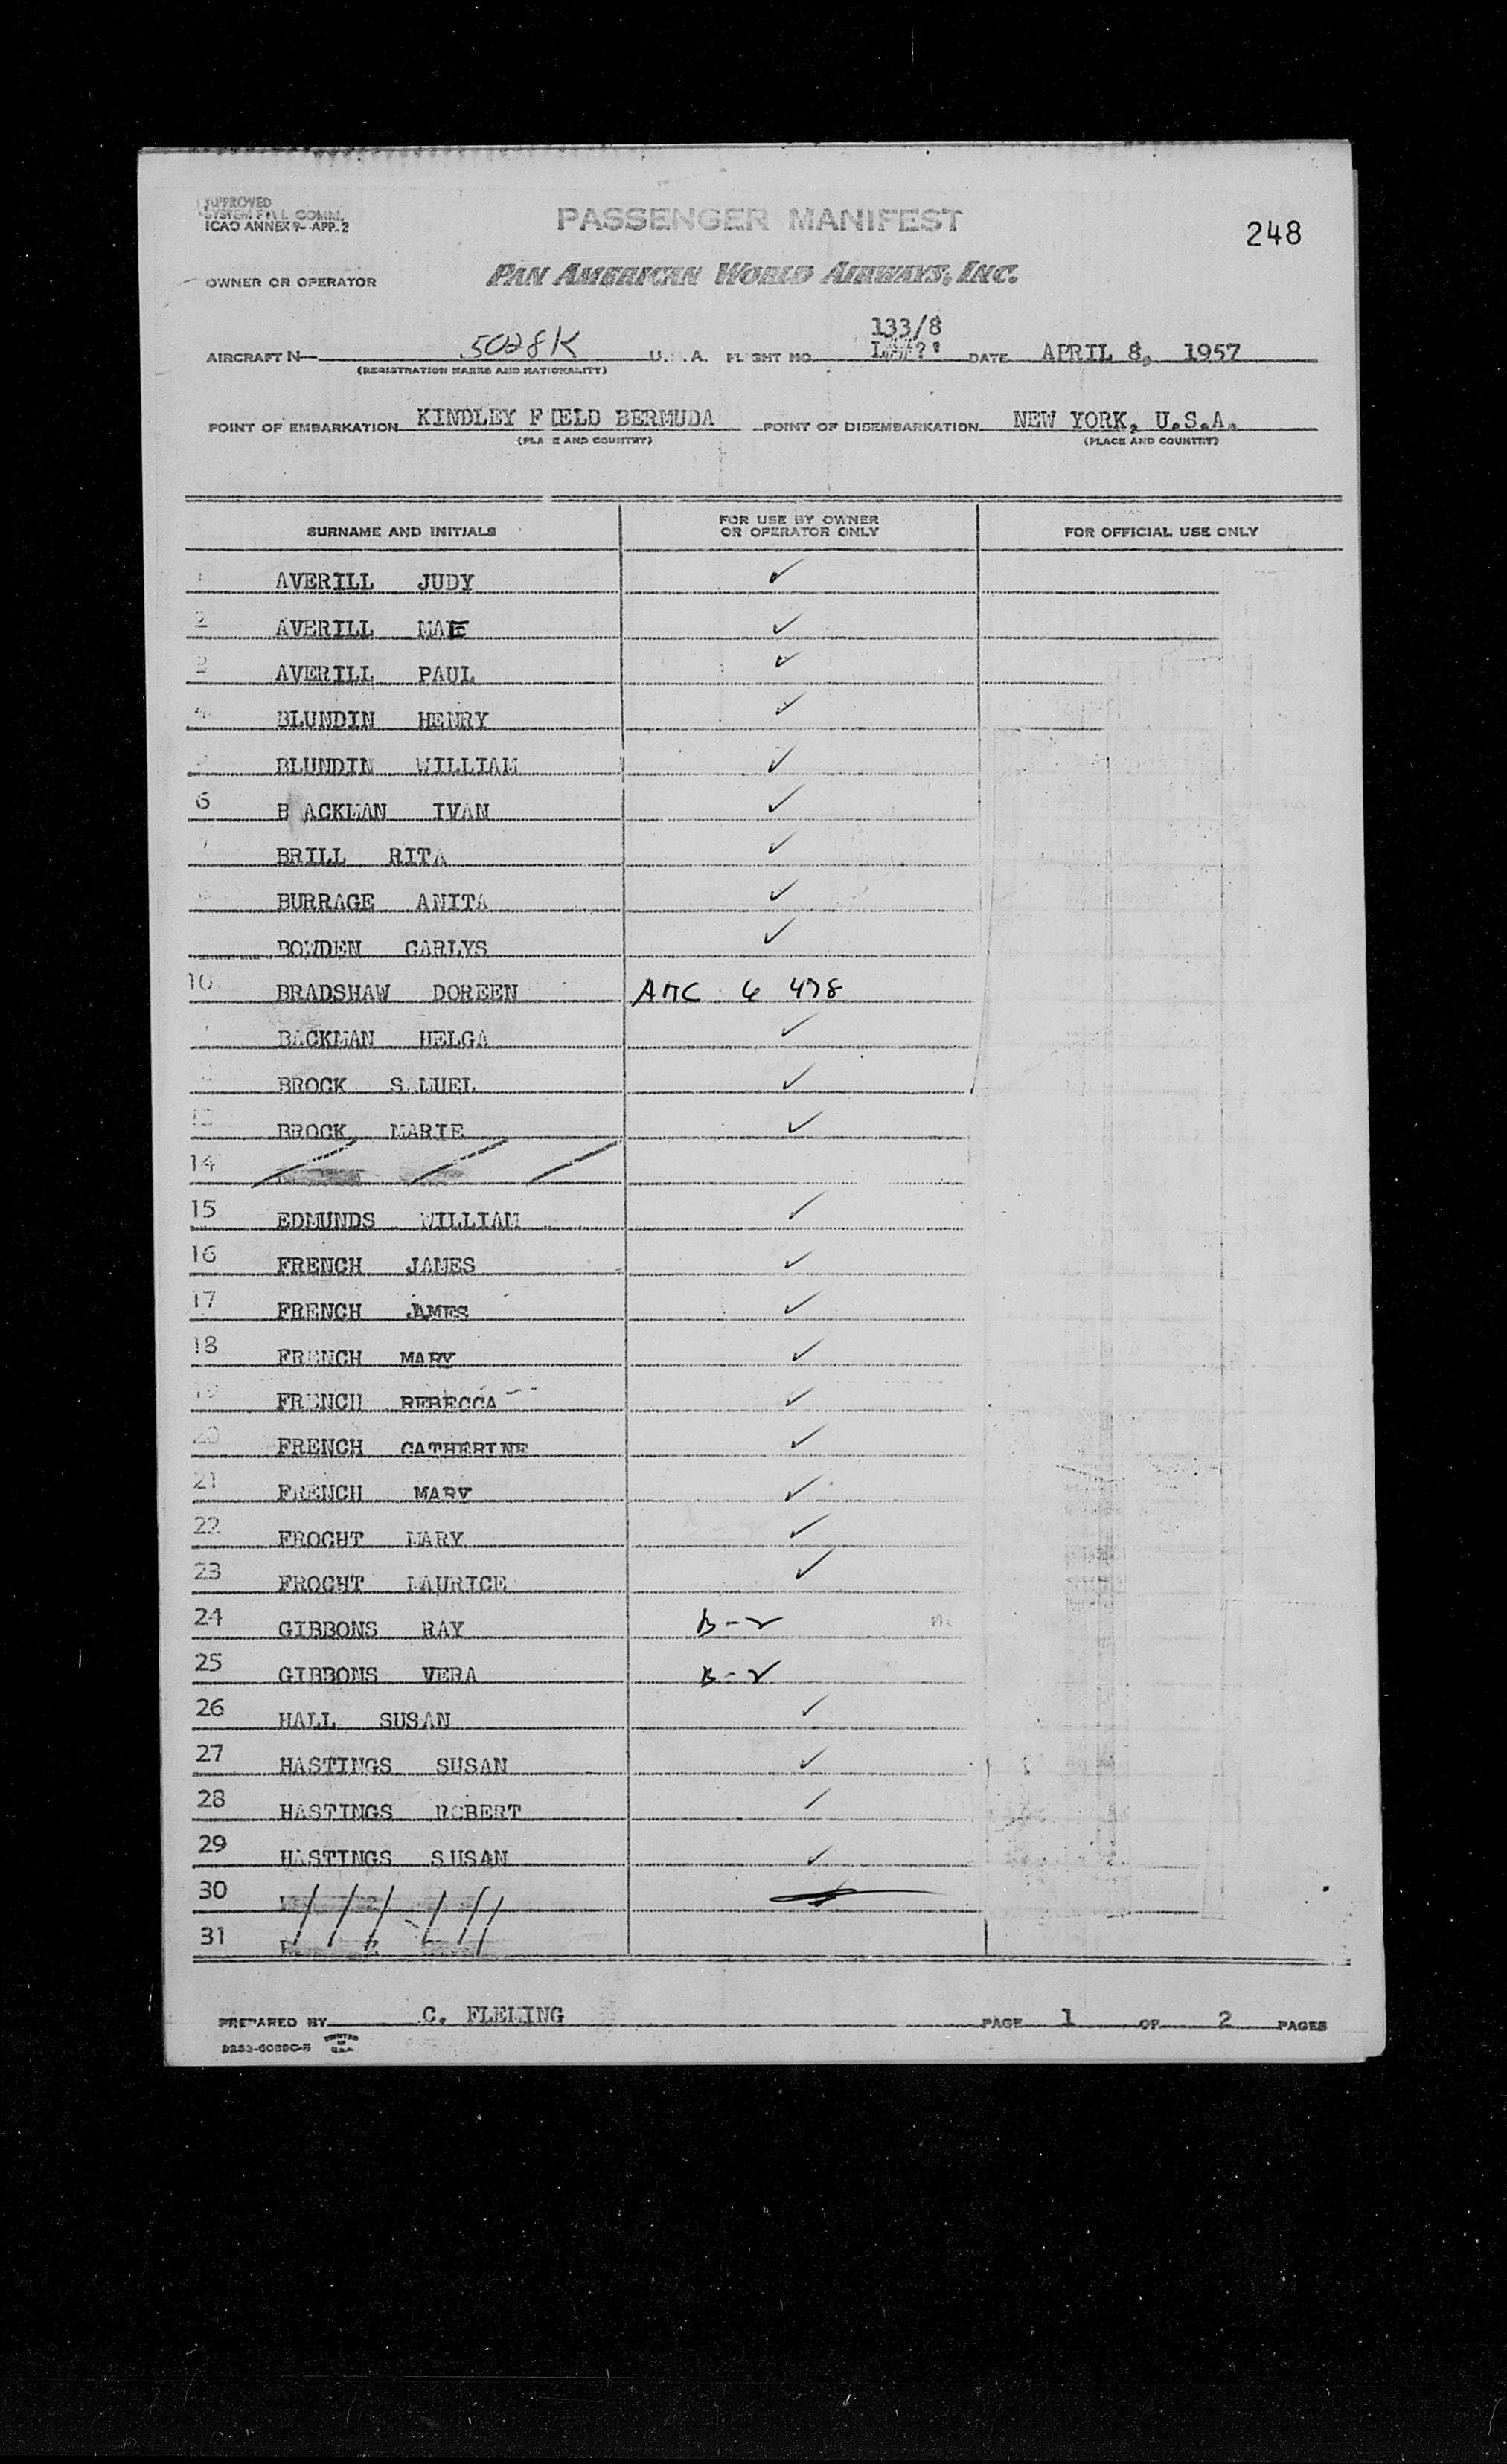 APPROVED
SYSTEM COMM.
ICAO ANNEX 9- APP. 2
PASSENGER MANIFEST
248
OWNER OR OPERATOR PAN AMERICAN WORLD AIRWAYS, INC.
133/8
AIRCRAFT N— 5028K U. A. FL GHT NO. DATE APRIL 8, 1957
(REGISTRATION MARKS AND NATIONALITY)
POINT OF EMBARKATION KINDLEY FIELD BERMUDA POINT OF DISEMBARKATION NEW YORK, U.S.A.
(PLA E AND COUNTRY) (PLACE AND COUNTRY)
SURNAME AND INITIALS FOR USE BY OWNER OR OPERATOR ONLY FOR OFFICIAL USE ONLY
1 AVERILL JUDY ✓
2 AVERILL MAE ✓
3 AVERILL PAUL ✓
4 BLUNDIN HENRY ✓
BLUNDIN WILLIAM ✓
6 B ACKMAN IVAN ✓
7 BRILL RITA ✓
BURRAGE ANITA ✓
BOWDEN CARLYS ✓
10 BRADSHAW DOREEN AMC 6 478
BACKMAN HELGA ✓
BROCK SAMUEL ✓
13 BROCK MARIE ✓
14
15 EDMUNDS WILLIAM ✓
16 FRENCH JAMES ✓
17 FRENCH JAMES ✓
18 FRENCH MARY ✓
19 FRENCH REBECCA ✓
20 FRENCH CATHERINE ✓
21 FRENCH MARY ✓
22 FROCHT MARY ✓
23 FROCHT MAURICE ✓
24 GIBBONS RAY B-2
25 GIBBONS VERA B-2
26 HALL SUSAN ✓
27 HASTINGS SUSAN ✓
28 HASTINGS ROBERT ✓
29 HASTINGS SUSAN ✓
30
31
PREPARED BY C. FLEMING PAGE 1 OF 2 PAGES
PRINTED IN U.S.A.